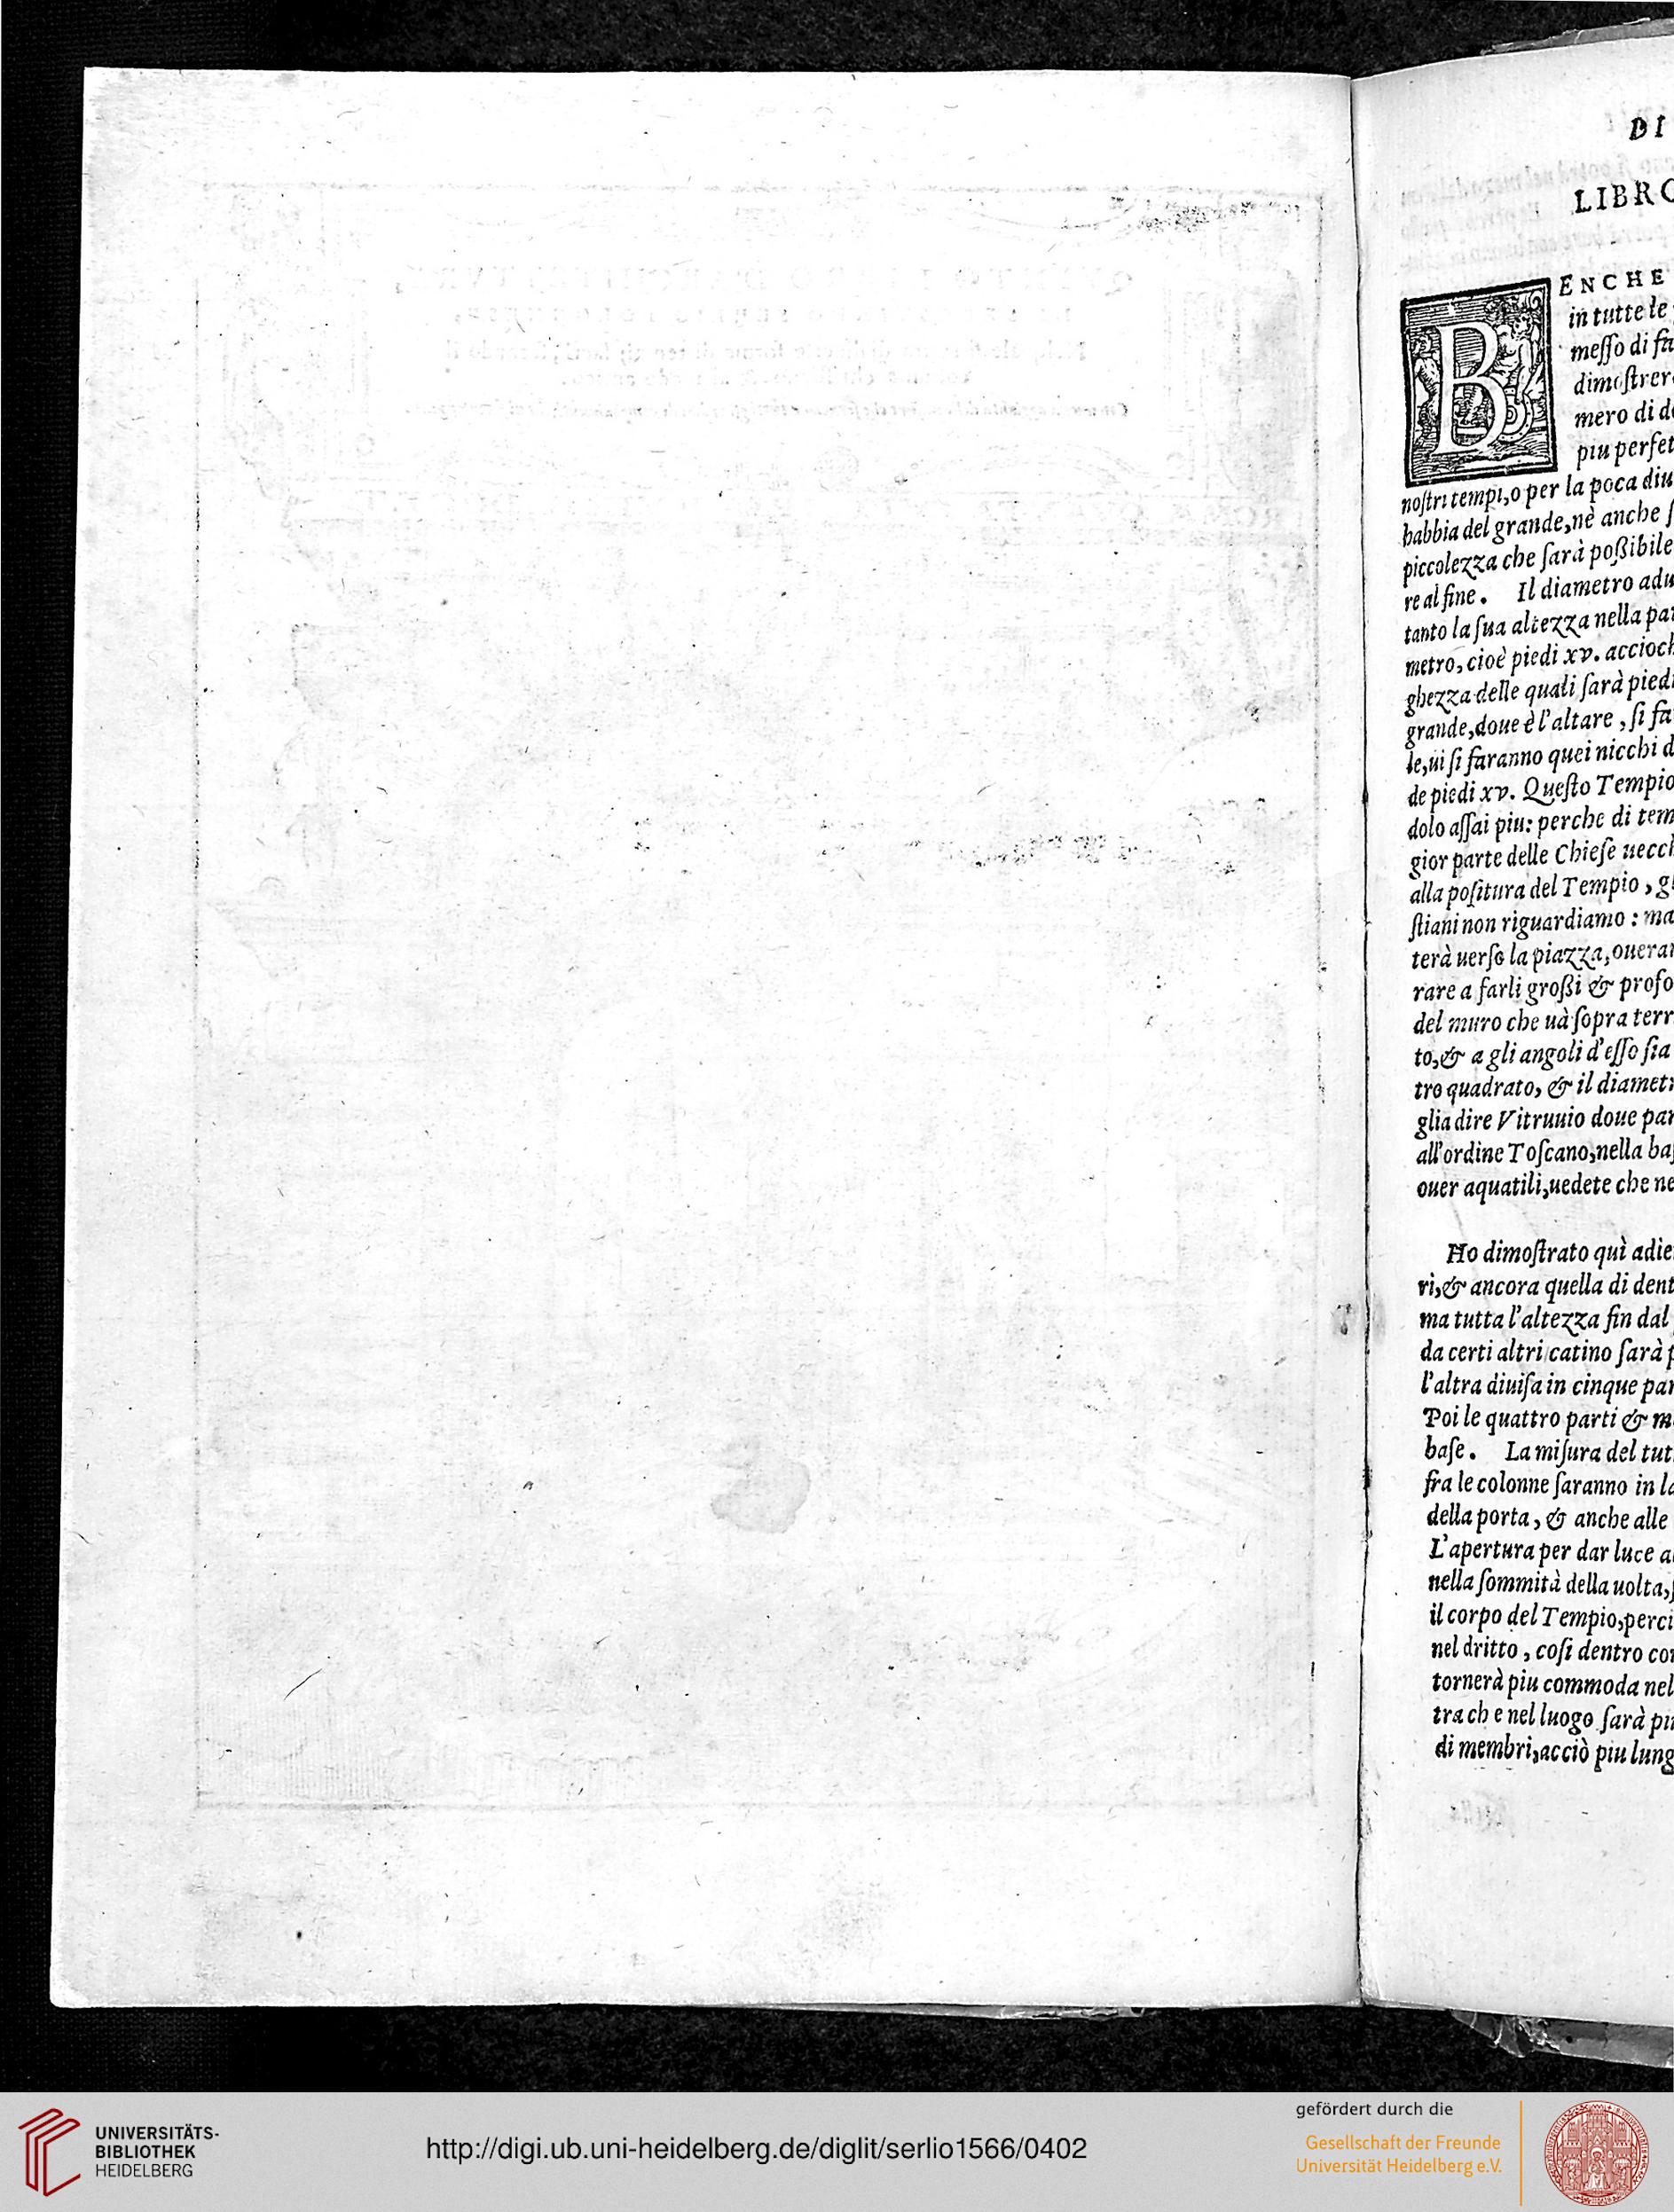 DI
LIBRO
BENCHE
in tutte le
meſſo di fa
dimoſtrer
mero di d
piu perfet
noſtri tempi,o per la poca diu
habbia del grande,nè anche ſ
piccolezza che ſarà poßibile
re al fine. Il diametro adu
tanto la ſua altezza nella par
metro, cioè piedi xv. accioch
ghezza delle quali ſarà piedi
grande,doue è l'altare , ſi fa
le,ui ſi faranno quei nicchi d
de piedi xv. Queſto Tempio
dolo aſſai piu: perche di tem
gior parte delle Chieſe uecch
alla poſitura del Tempio , gl
ſtiani non riguardiamo : ma
terà uerſo la piazza,oueran
rare a farli großi & profo
del muro che uà ſopra terr
to,& a gli angoli d'eſſo ſia
tro quadrato, & il diametr
glia dire Vitruuio doue par
all'ordine Toſcano,nella baſ
ouer aquatili,uedete che ne
Ho dimoſtrato quì adie
ri,& ancora quella di dent
ma tutta l'altezza fin dal
da certi altri catino ſarà p
l'altra diuiſa in cinque par
Poi le quattro parti & m
baſe. La miſura del tut
fra le colonne ſaranno in la
della porta, & anche alle
L'apertura per dar luce al
nella ſommità della uolta,ſ
il corpo del Tempio,perci
nel dritto , coſi dentro cor
tornerà piu commoda nel
tra ch e nel luogo ſarà piu
di membri,acciò piu lung
UNIVERSITÄTS-
BIBLIOTHEK
HEIDELBERG
http://digi.ub.uni-heidelberg.de/diglit/serlio1566/0402
gefördert durch die
Gesellschaft der Freunde
Universität Heidelberg e.V.